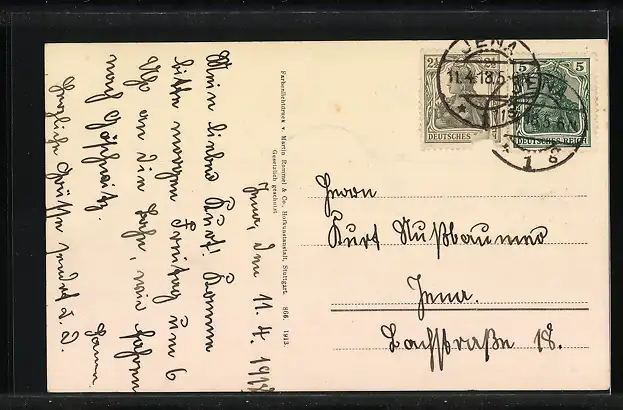 Jena, den 11. 4. 1918
Mein lieber Kurt! Komm
bitte morgen Freitag um 6
Uhr an die Bahn, wir fahren
nach Göschwitz.
Herzliche Grüße sendet d. D.
Farbenlichtdruck v. Martin Rommel & Co., Hofkunstanstalt, Stuttgart. 866. 1913.
Gesetzlich geschützt
2½ 2½
DEUTSCHES
5 5
DEUTSCHES REICH
JENA
11.4.18.5-6
1
Herrn
Kurt Nußbaumer
Jena.
Bachstraße 18.